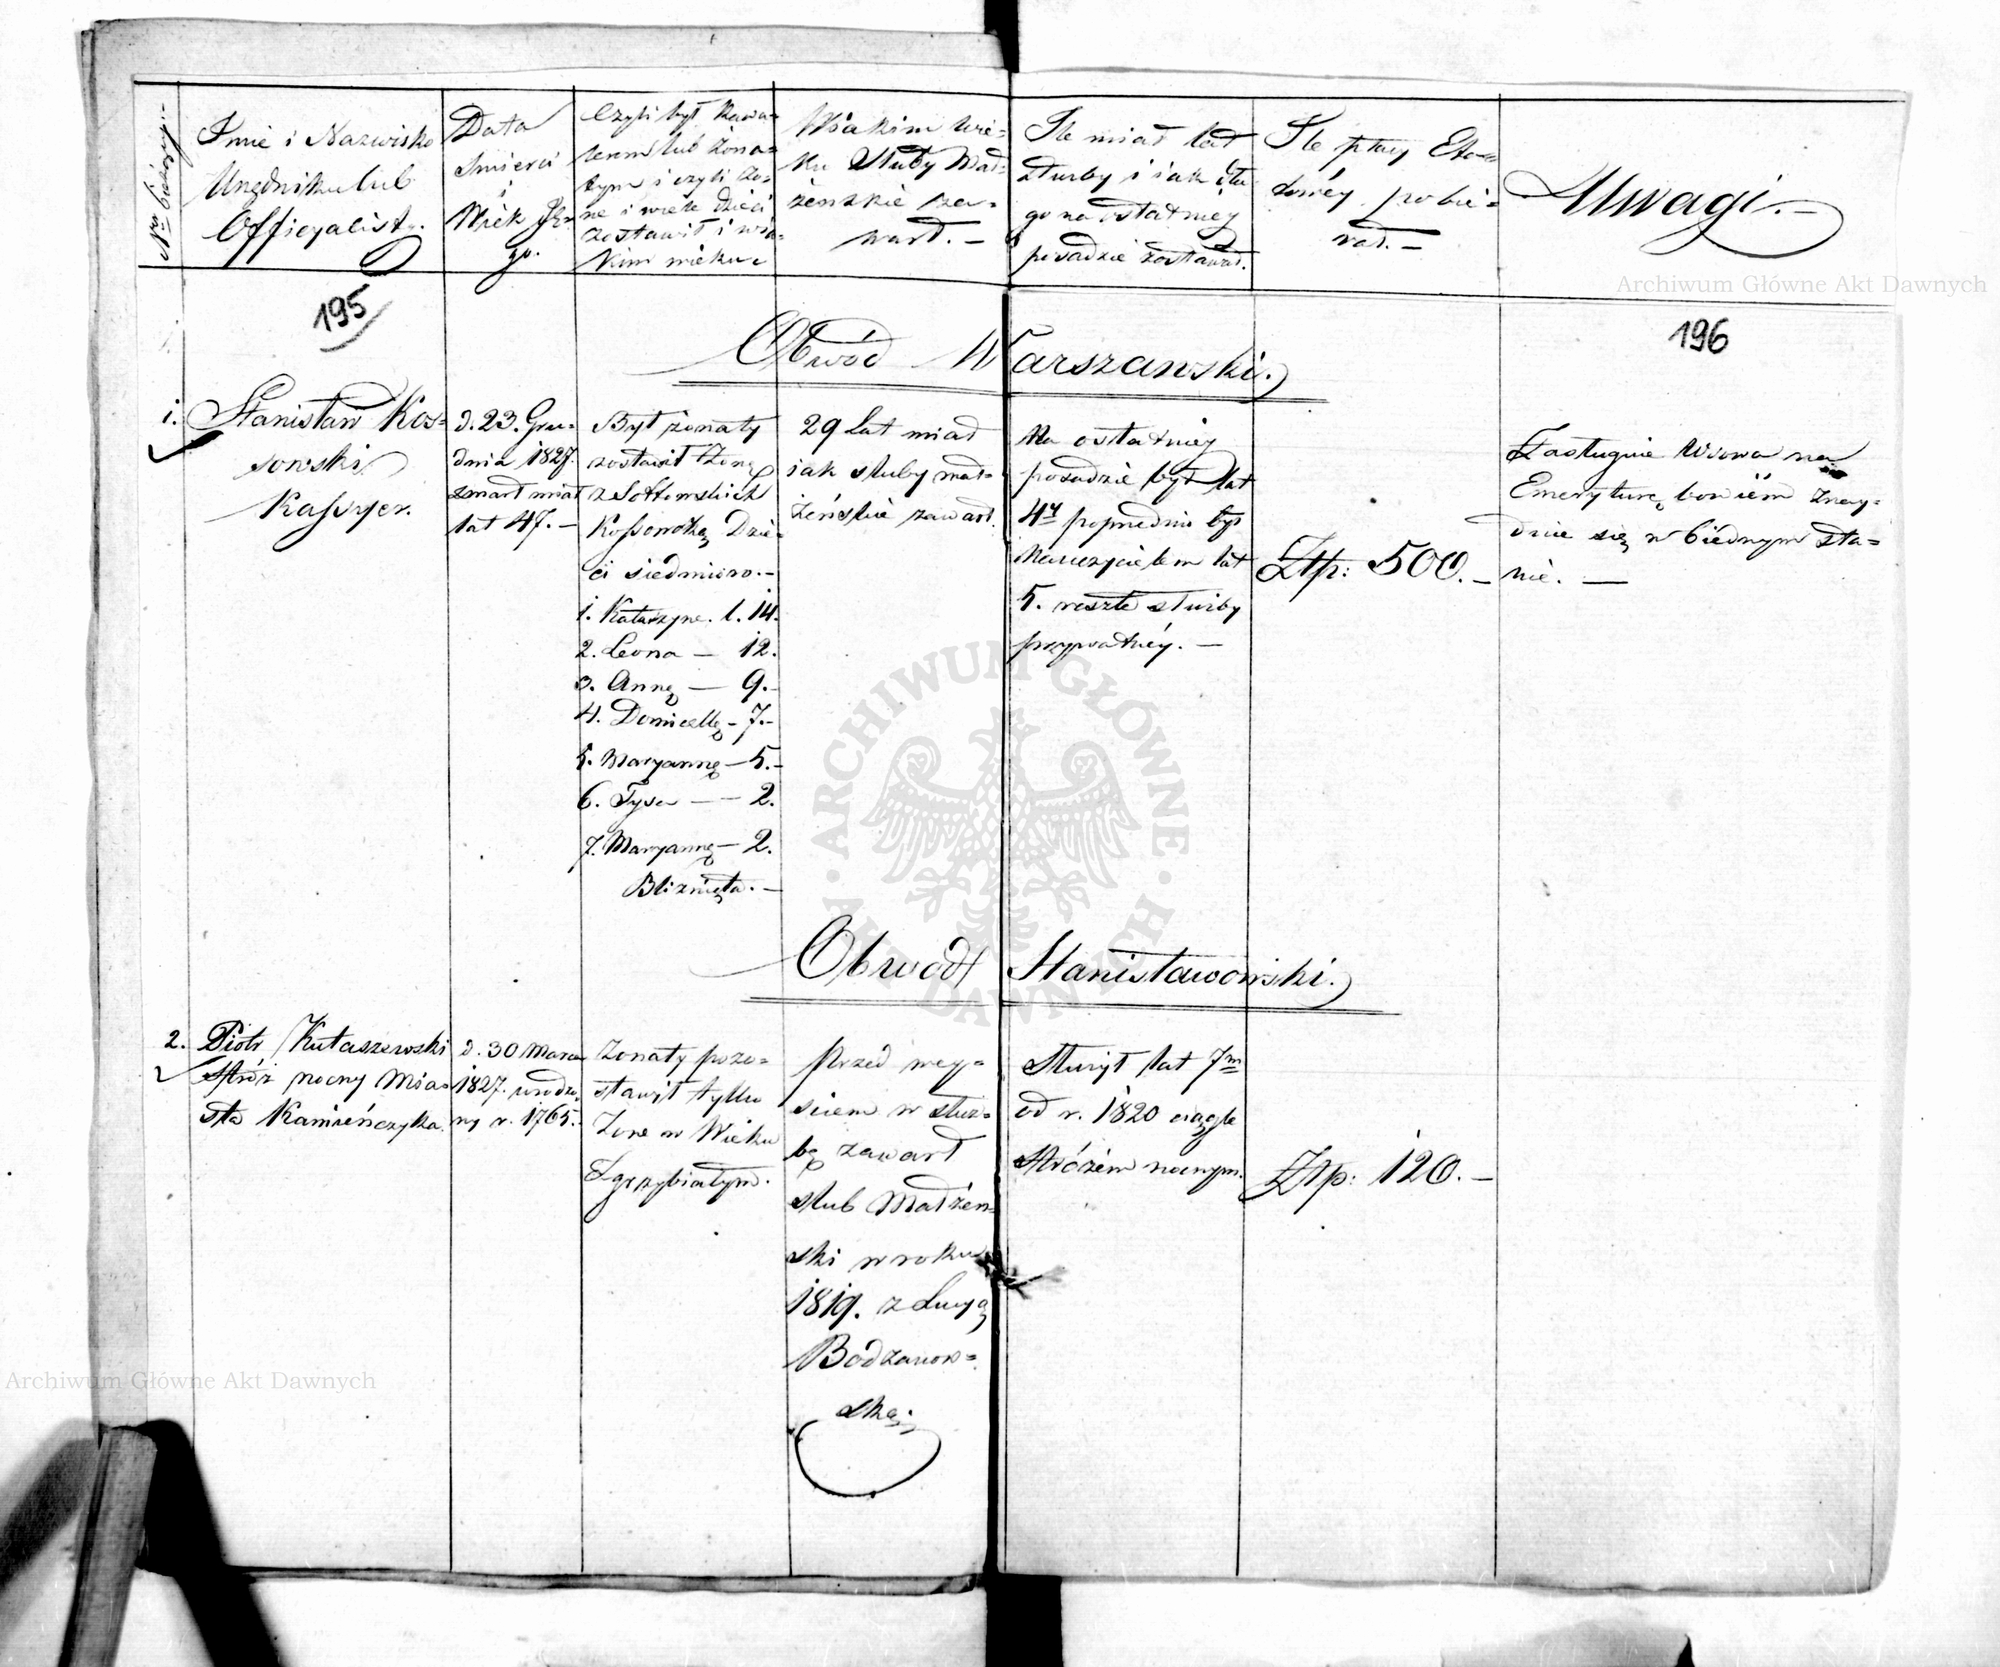 Nro bieżący.
Imie i Nazwisko
Urzędnika lub
Officyalisty.
Data
Smierci
i
Wiek Je-
go.
Czyli był Kawa-
lerem lub żona-
tym i czyli Żo-
ne i wiele Dzieci
zostawił i w ia-
kim wieku
W iakim wie-
ku Sluby Mał-
żenskie za-
warł. –
Ile miał lat
służby i iak dłu
go na ostatniey
posadzie zostawał.
Ile płacy Eta-
towéy pobie-
rał. –
Uwagi. –
Archiwum Główne Akt Dawnych
195
196
Obwód Warszawski.
1.
Stanisław Kos-
sowski
Kassyer.
d. 23. Gru-
dnia 1827.
zmarł miał
lat 47. –
Był żonaty
zostawił Żonę
z Sołtowskich
Kossowską Dzie-
ci siedmioro. –
1. Katarzynę l. 14.
2. Leona – 12.
3. Annę – 9. –
4. Domicellę – 7. –
5. Maryannę – 5. –
6. – – 2.
7. Maryannę – 2.
Bliznięta. –
29 Lat miał
jak sluby mał-
żeńskie zawarł.
Na ostatniey
posadzie był lat
4y poprzednio był
Nauczycielem lat
5. resztę służby
prywatnéy. –
Złp: 500. –
Zasługuie Wdowa na
Emeryturę bowiem znay-
duie się w biednym sta-
nie. –
ARCHIWUM GŁÓWNE · AKT DAWNYCH ·
Obwód Stanisławowski.
2.
Piotr Kutaszewski
Stróż nocny Mia-
sta Kamieńczyka
d. 30 Marca
1827. urodzo-
ny r. 1765. –
Żonaty pozo-
stawił tylko
Żonę w Wieku
zgrzybiałym.
Przed wey-
sciem w służ-
bę zawarł
slub Małżen-
ski w roku
1819. z Lucyą
Bodzanow-
ską.
Służył lat 7m
od r. 1820 ciągle
Stróżem nocnym.
Złp: 120. –
Archiwum Główne Akt Dawnych